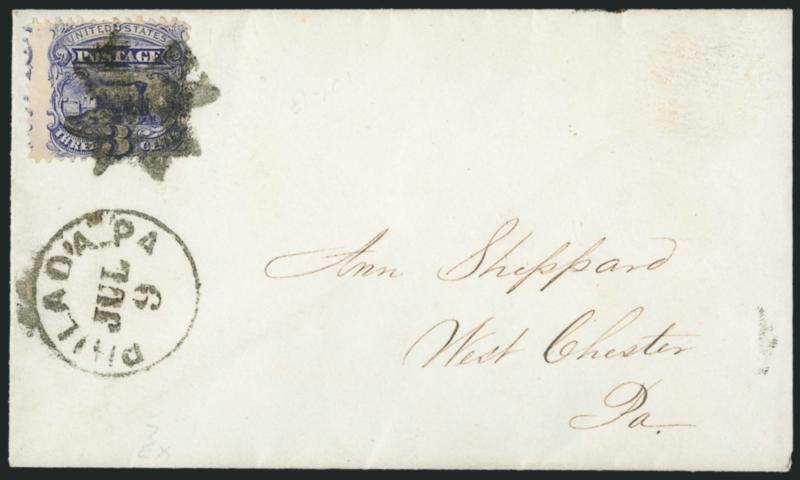 UNITED STATES
POSTAGE
THREE 3 CENTS
PHILAD'A. PA
JUL
6
Ann Sheppard
West Chester
Pa.
EX